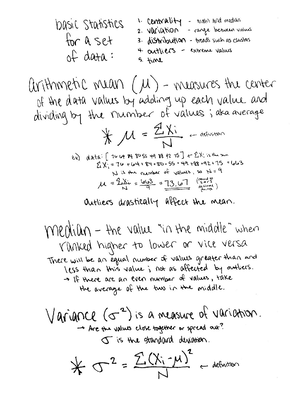 basic Statistics
for a set
of data:
1. centrality - mean and median
2. variation - range between values
3. distribution - trends such as clusters
4. outliers - extreme values
5. time
arithmetic mean (μ) - measures the center
of the data values by adding up each value and
dividing by the number of values; aka average
* μ = ΣXi / N ← definition
N is the number of values, so N = 9
μ = ΣXi / N = 663 / 9 = 73.67
Outliers drastically affect the mean.
median - the value "in the middle" when
ranked higher to lower or vice versa
There will be an equal number of values greater than and
less than this value; not as affected by outliers.
→ If there are an even number of values, take
the average of the two in the middle.
Variance (σ²) is a measure of variation.
→ Are the values close together or spread out?
σ is the standard deviation.
* σ² = Σ(Xi - μ)² / N ← definition